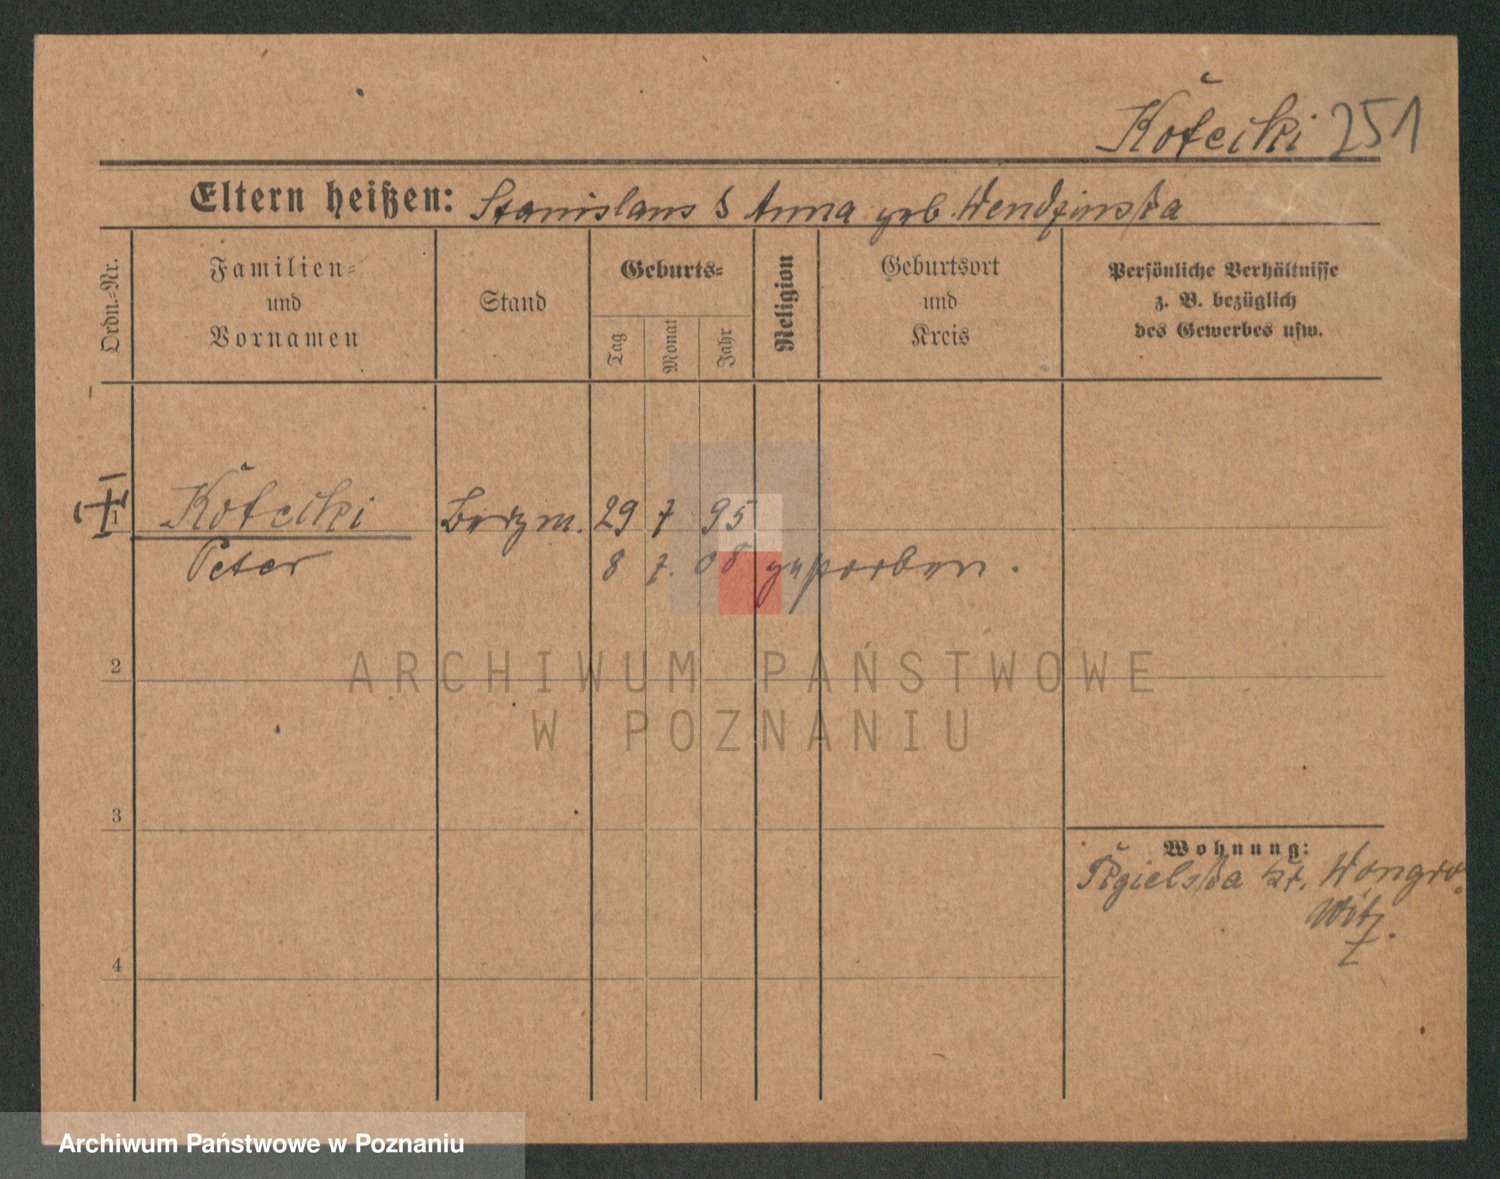 Kořecki 251
Eltern heißen: Stanislaus & Anna geb. Wendzinska
Ordn.-Nr.
Familien-
und
Vornamen
Stand
Geburts-
Tag
Monat
Jahr
Religion
Geburtsort
und
Kreis
Persönliche Verhältnisse
z. B. bezüglich
des Gewerbes usw.
1
Bergm. 29 7 95
Peter
8 7. 08 gestorben.
ARCHIWUM PAŃSTWOWE
W POZNANIU
2
3
4
Wohnung:
Kr. Wongro-
witz.
Archiwum Państwowe w Poznaniu